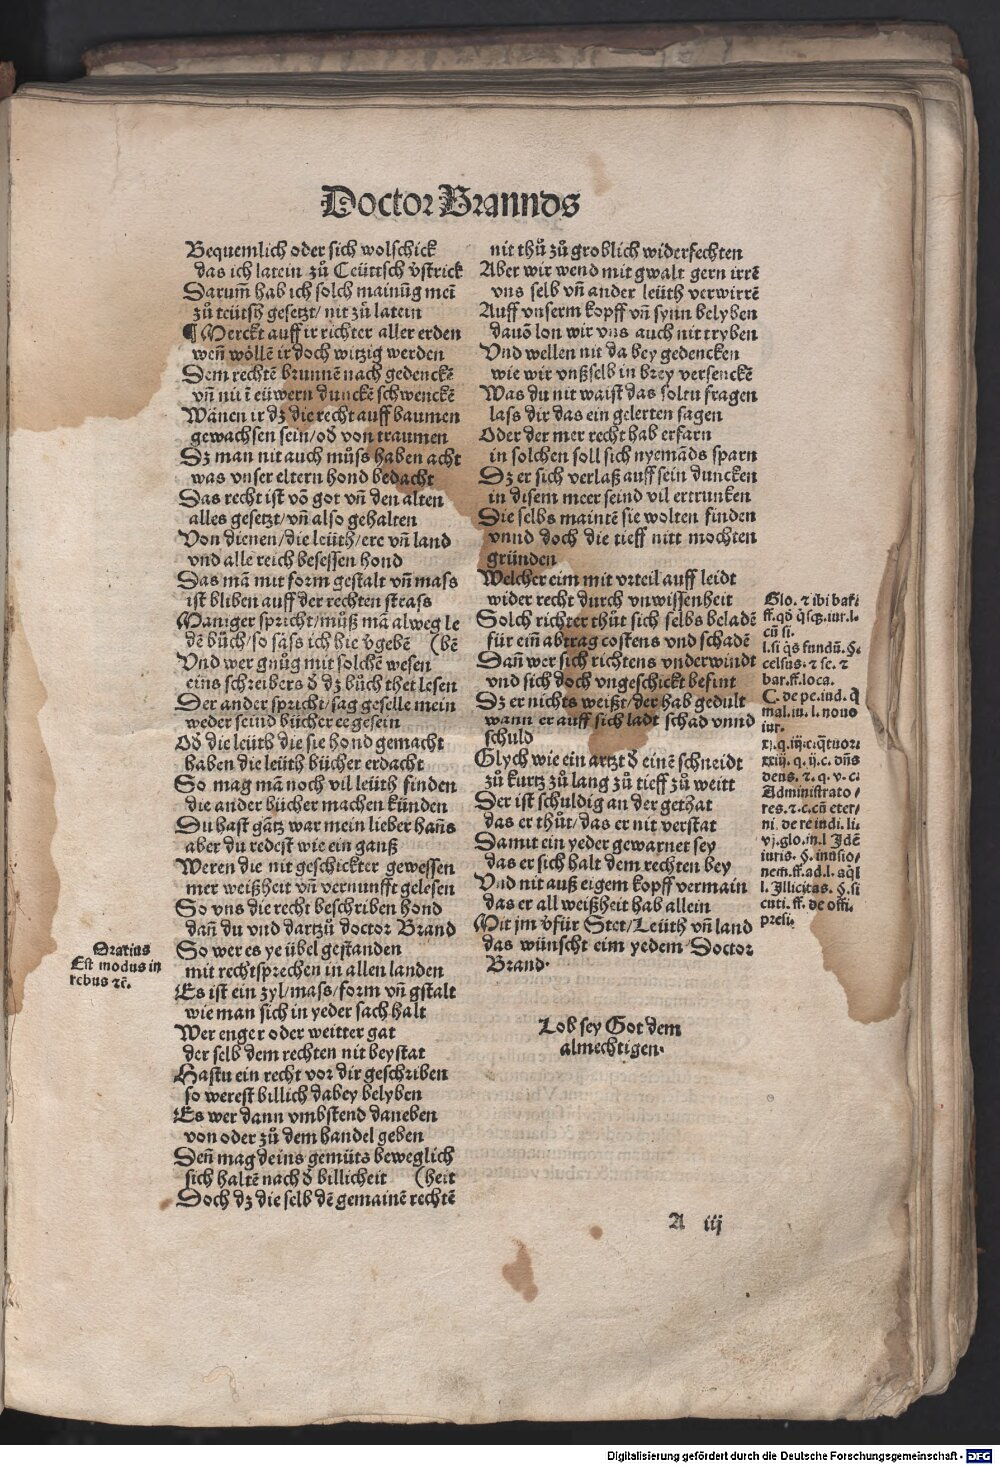 Doctor Brannds
Bequemlich oder sich wolschick
das ich latein zů Teüttsch v̉strick
Darum̃ hab ich solch mainũg mei᷈
zů teütsh gesetzt/ nit zů latein
¶ Merckt auff ir richter aller erden
wen̄ wöllē ir doch witzig werden
Dem rechtē brunnē nach gedenckē
vn̄ nit ī eüwern dunckē schwenckē
Wänen ir dz die recht auff baumen
gewachsen sein/od̉ von traumen
Dz man nit auch můss haben acht
was vnser eltern hond bedacht
Das recht ist vō got vn̄ den alten
alles gesetzt/vn̄ also gehalten
Von dienen/die leüth/ere vn̄ land
vnd alle reich besessen hond
Das mā mit form gestalt vn̄ mass
ist bliben auff der rechten strass
Maniger spricht/můß mā alweg le
dē bůch/so säss ich hie v̉gebē (bē
Vnd wer gnůg mit solchē wesen
eins schreibers d̉ dz bůch thet lesen
Der ander spricht/sag geselle mein
weder seind bücher ee gesein
Od̉ die leüth die sie hond gemacht
haben die leüth bücher erdacht
So mag mā noch vil leüth finden
die ander bücher machen künden
Du hast gātz war mein lieber han̄s
aber du redest wie ein ganß
Weren die nit geschickter gewessen
mer weißheit vn̄ vernunfft gelesen
So vns die recht beschriben hond
dan̄ du vnd dartzů doctor Brand
So wer es ye übel gestanden
mit rechtsprechen in allen landen
Es ist ein zyl/mass/form vn̄ gstalt
wie man sich in yeder sach halt
Wer enger oder weitter gat
der selb dem rechten nit beystat
Hastu ein recht vor dir geschriben
so werest billich dabey belyben
Es wer dann vmbstend daneben
von oder zů dem handel geben
Den̄ mag deins gemüts beweglich
sich haltē nach d̉ billicheit (heit
Doch dz die selb dē gemainē rechtē
Oratius
Est modus in
rebus ⁊c̄.
nit thů zů groblich widerfechten
Aber wir wend mit gwalt gern irrē
vns selb vn̄ ander leüth verwirrē
Auff vnserm kopff vn̄ synn belyben
dauō lon wir vns auch nit tryben
Vnd wellen nit da bey gedencken
wie wir vnßselb in brey versenckē
Was du nit waist das soltu fragen
lass dir das ein gelerten sagen
Oder der mer recht hab erfarn
in solchen soll sich nyemāds sparn
Dz er sich verlaß auff sein duncken
in disem meer seind vil ertrunken
Die selbs maintē sie wolten finden
vnnd doch die tieff nitt mochten
gründen
Welcher eim mit vrteil auff leidt
wider recht durch vnwissenheit
Solch richter thůt sich selbs beladē
für ein̄ abtrag costens vnd schadē
Dan̄ wer sich richtens vnderwindt
vnd sich doch vngeschickt befint
Dz er nichts weißt/der hab gedult
wann er auff sich ladt schad vnnd
schuld
Glych wie ein artzt d̉ einē schneidt
zů kurtz zů lang zů tieff zů weitt
Der ist schuldig an der gethat
das er thůt/das er nit verstat
Damit ein yeder gewarnet sey
das er sich halt dem rechten bey
Vnd nit auß eigem kopff vermain
das er all weißheit hab allein
Mit jm v̉für Stet/Leüth vn̄ land
das wünscht eim yedem/Doctor
Brand.
Lob sey Got dem
almechtigen.
Glo. ⁊ ibi bar.
ff. qd̉ iur. l.
cū si.
l. si q̄s fundū. §.
celsus. ⁊ sc. ⁊
bar. ff. loca.
C. de pe. iud. q̄
mal. iu. l. nouo
iur.
xj. q. iij. c. q̄tuor.
xxiij. q. ij. c. dn̄s
dens. ⁊ q. v. c.
Administrato/
res. ⁊ c. cū eter/
ni. de re iudi. li.
vj. glo. in. l Idē
iuris. §.
nem. ff. ad. l. aq̄l
l. Illicitas. §. si
cuti. ff. de offi.
presi.
A iij
Digitalisierung gefördert durch die Deutsche Forschungsgemeinschaft - DFG